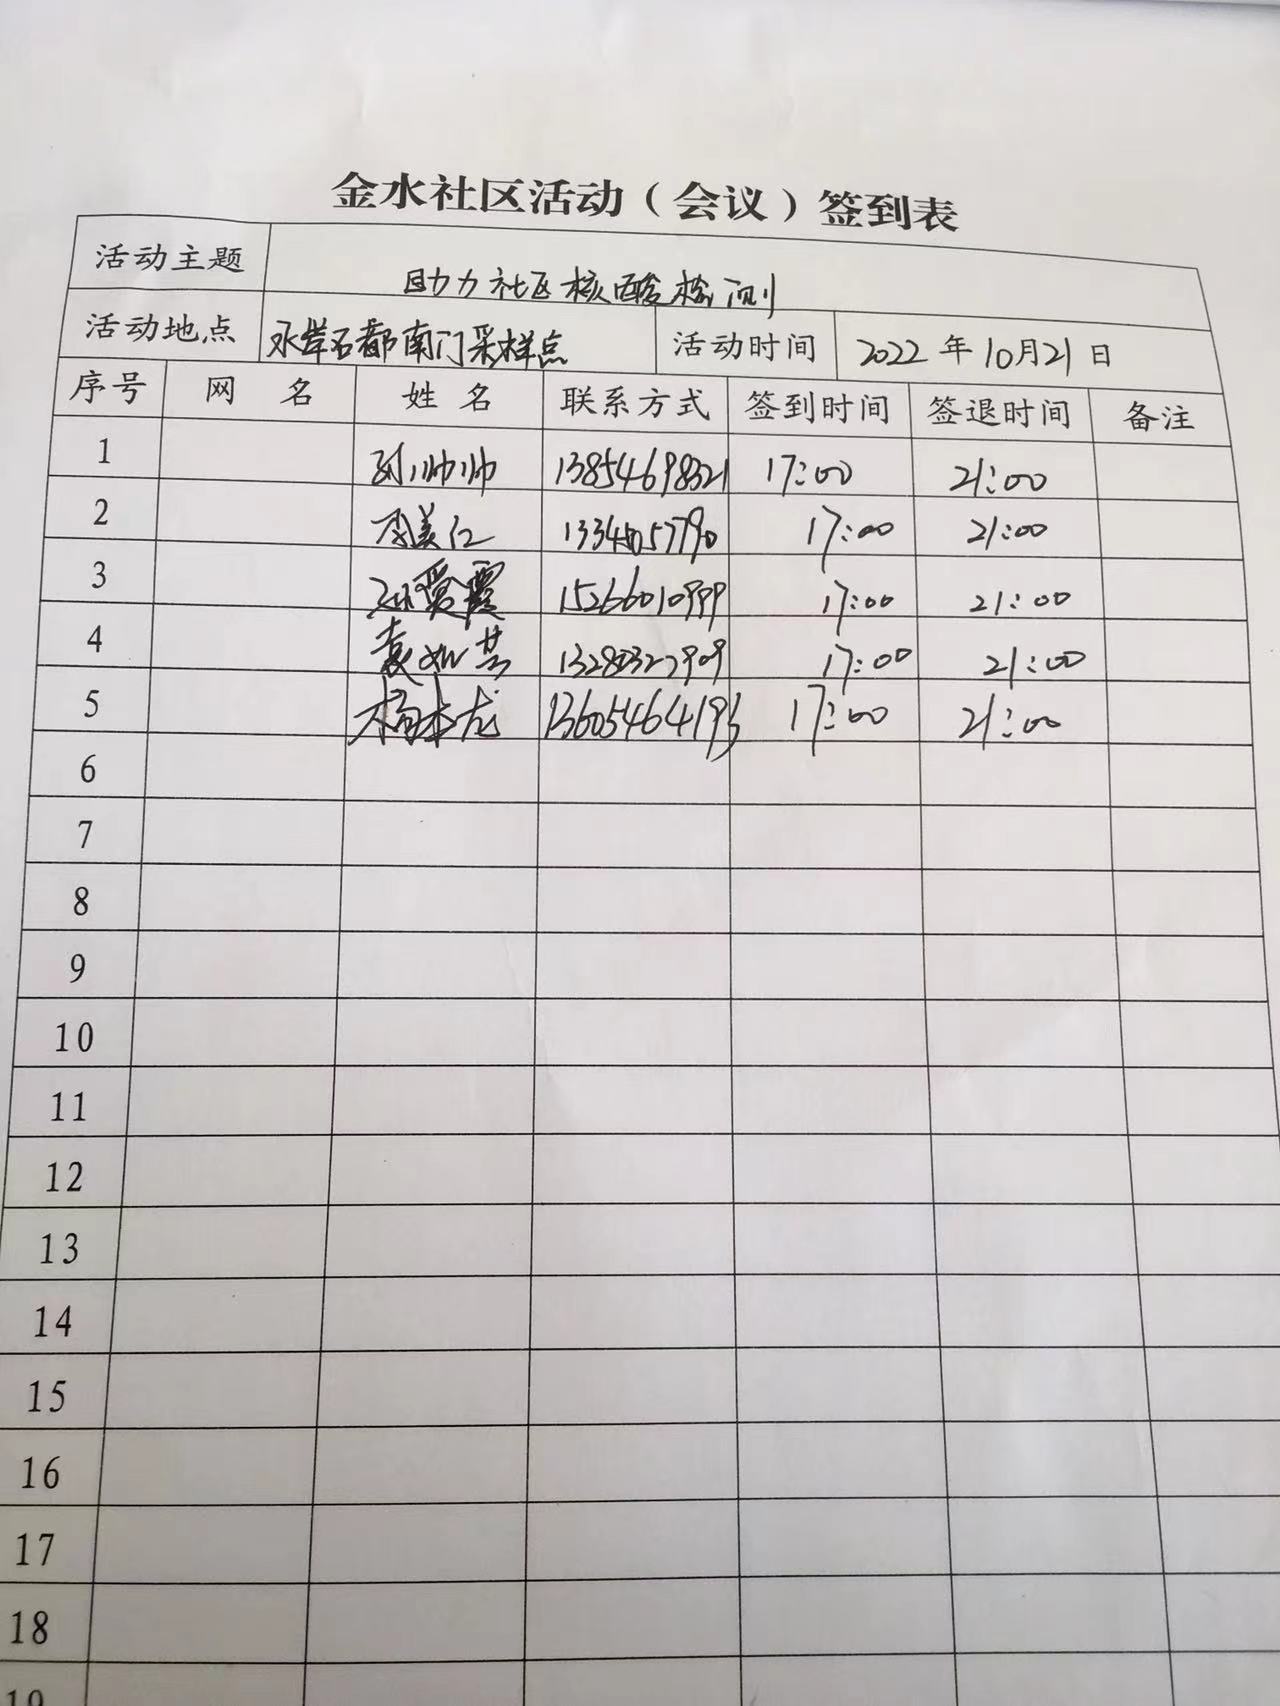 金水社区活动（会议）签到表
活动主题 助力社区核酸检测
活动地点 水岸石都南门采样点 活动时间 2022年10月21日
序号 网 名 姓 名 联系方式 签到时间 签退时间 备注
1 孙帅帅 13854698321 17:00 21:00
2 李美仁 13345057790 17:00 21:00
3 孙爱霞 15266010999 17:00 21:00
4 袁如芸 13280327909 17:00 21:00
5 杨本龙 13605464193 17:00 21:00
6
7
8
9
10
11
12
13
14
15
16
17
18
19